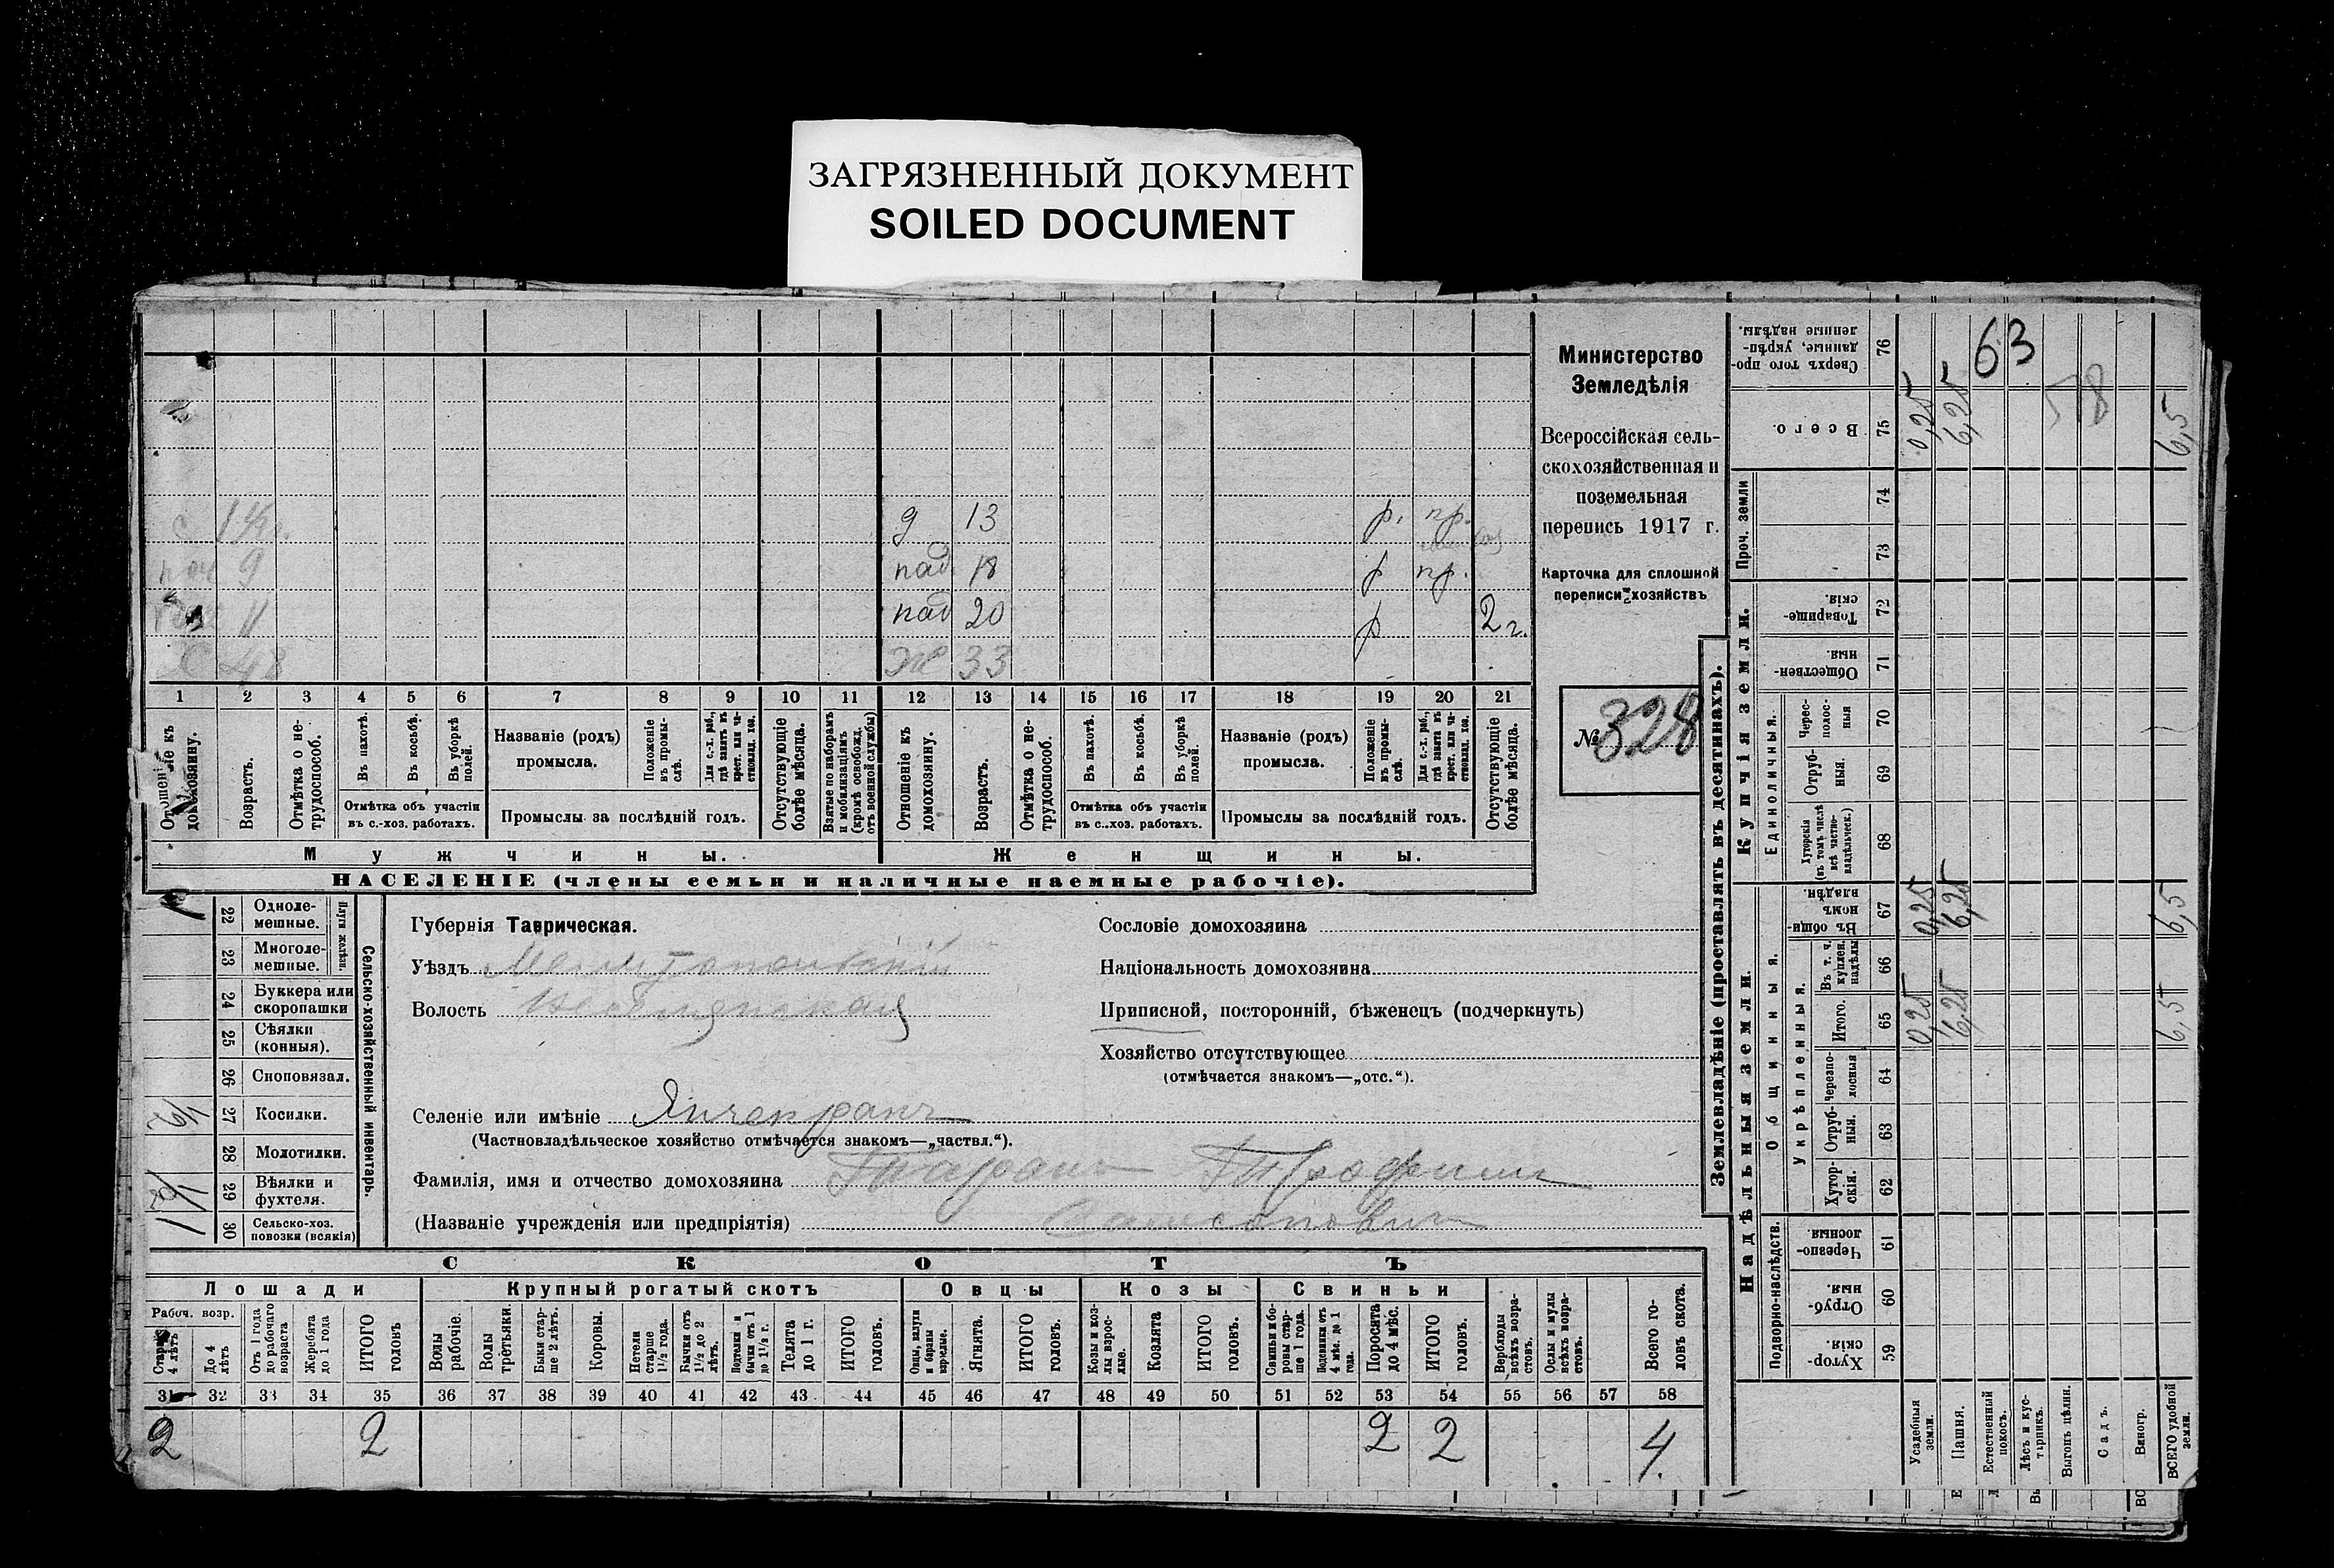 ЗАГРЯЗНЕННЫЙ ДОКУМЕНТ
SOILED DOCUMENT
д 13 р. пр.
9 пад. 18 р пр.
11 пад 20 р 2 г.
48 ж 33
1 2 3 4 5 6 7 8 9 10 11 12 13 14 15 16 17 18 19 20 21
Отношеніе къ домохозяину.
Возрастъ.
Отмѣтка о нетрудоспособ.
Въ пахотѣ.
Въ косьбѣ.
Въ уборкѣ полей.
Отмѣтка объ участіи въ с.-хоз. работахъ.
Названіе (родъ) промысла.
Положеніе въ промыслѣ.
Для с.-х. раб., гдѣ занятъ въ крест. или частновлад. хоз.
Промыслы за послѣдній годъ.
Отсутствующіе болѣе мѣсяца.
Взятые по наборамъ и мобилизаціямъ (кромѣ освобожд. отъ военной службы)
Отношеніе къ домохозяину.
Возрастъ.
Отмѣтка о нетрудоспособ.
Въ пахотѣ.
Въ косьбѣ.
Въ уборкѣ полей.
Отмѣтка объ участіи въ с..хоз. работахъ.
Названіе (родъ) промысла.
Положеніе въ промыслѣ.
Для с.-х. раб., гдѣ занята въ крест. или частновлад. хоз.
Промыслы за послѣдній годъ.
Отсутствующіе болѣе мѣсяца.
Мужчины.
Женщины.
НАСЕЛЕНІЕ (члены семьи и наличные наемные рабочіе).
Министерство
Земледѣлія
Всероссійская сель-
скохозяйственная и
поземельная
перепись 1917 г.
Карточка для сплошной
переписи хозяйствъ
№ 328
22 Одноле-
мешные.
23 Многоле-
мешные.
Плуги желѣзн.
24 Буккера или
скоропашки
25 Сѣялки
(конныя).
26 Сноповязал.
27 Косилки. 1/2
28 Молотилки.
29 Вѣялки и
фухтеля. 1/2
30 Сельско-хоз.
повозки (всякія) 1
Сельско-хозяйственный инвентарь.
Губернія Таврическая.
Уѣздъ Мелитопольскій
Волость
Селеніе или имѣніе Янчекракъ
(Частновладѣльческое хозяйство отмѣчается знакомъ—„частвл.“).
Фамилія, имя и отчество домохозяина Таранъ Трофимъ
(Названіе учрежденія или предпріятія) Самсоновичъ
Сословіе домохозяина
Національность домохозяина
Приписной, посторонній, бѣженец (подчеркнуть)
Хозяйство отсутствующее
(отмѣчается знакомъ—„отс.“).
СКОТЪ
Лошади
Крупный рогатый скотъ
Овцы
Козы
Свиньи
Рабоч. возр.
Старше 4 лѣтъ
До 4 лѣтъ
Отъ 1 года до рабочаго возраста
Жеребята до 1 года
ИТОГО головъ
Волы рабочіе.
Волы третьяки.
Быки старше 2 лѣтъ.
Коровы.
Нетели старше 1½ года.
Бычки отъ 1½ до 2 лѣтъ.
Подтелки и бычки отъ 1 до 1½ г.
Телята до 1 г.
ИТОГО головъ.
Овцы, валухи и бараны взрослые.
Ягнята.
ИТОГО головъ.
Козы и козлы взрослые.
Козлята
ИТОГО головъ.
Свиньи и боровы старше 1 года.
Подсвинки отъ 4 мѣс. до 1 года.
Поросята до 4 мѣс.
ИТОГО головъ.
Верблюды всѣхъ возрастовъ.
Ослы и мулы всѣхъ возрастовъ.
Всего головъ скота.
31 32 33 34 35 36 37 38 39 40 41 42 43 44 45 46 47 48 49 50 51 52 53 54 55 56 57 58
2 2 2 2 4.
Землевладѣніе (проставлять въ десятинахъ).
Купчія земли.
Надѣльныя земли.
Проч. земли
Единоличныя.
Общинныя.
Укрѣпленныя.
Подворно-наслѣдств.
76 Сверхъ того проданные, укрѣпленные надѣлы.
75 Всего. 0,25 6,25 6,5
74
73
72 Товарищескія.
71 Общественныя
70 Чересполосныя
69 Отрубныя.
68 Хуторскія (въ томъ числѣ всѣ частновладѣльческ.)
67 Въ общинномъ владѣн. 0,25 6,25 6,5
66 Въ т. ч. куплен. надѣлы
65 Итого. 0,25 6,25 6,5
64 Черезполосныя
63 Отрубныя.
62 Хуторскія.
61 Черезполосныя
60 Отрубныя.
59 Хуторскія.
63
58
Усадебныя земли.
Пашня.
Естественный покосъ.
Лѣсъ и кустарникъ.
Выгонъ цѣлин.
Садъ.
Виногр.
ВСЕГО удобной земли.